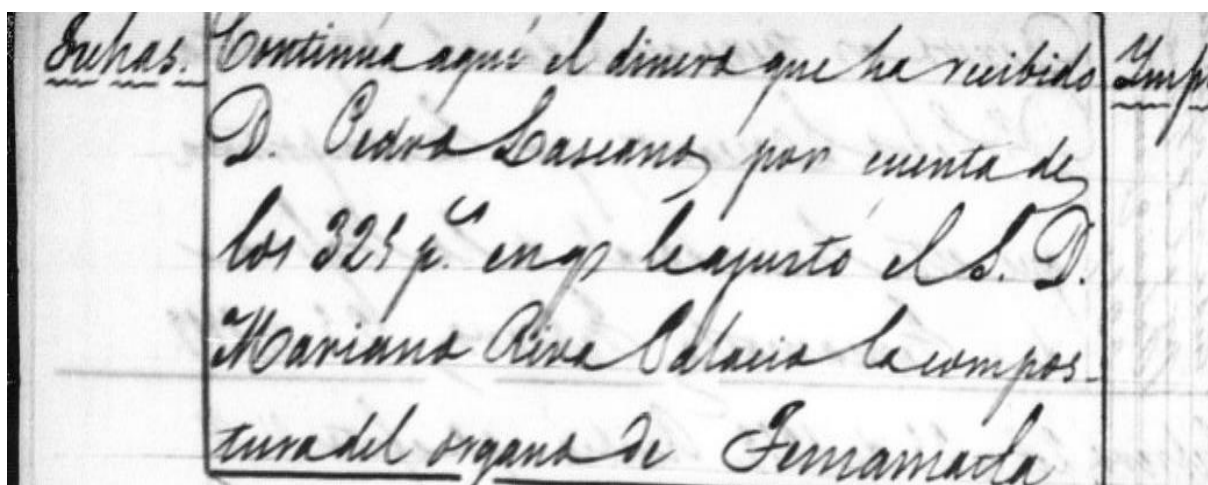 Fechas. Continúa aquí el dinero que ha recibido
D. Pedro Lascano por cuenta de
los 325 p.s en qe le ajustó el S. D.
Mariano Riva Palacio la compos-
tura del organo de Temamatla